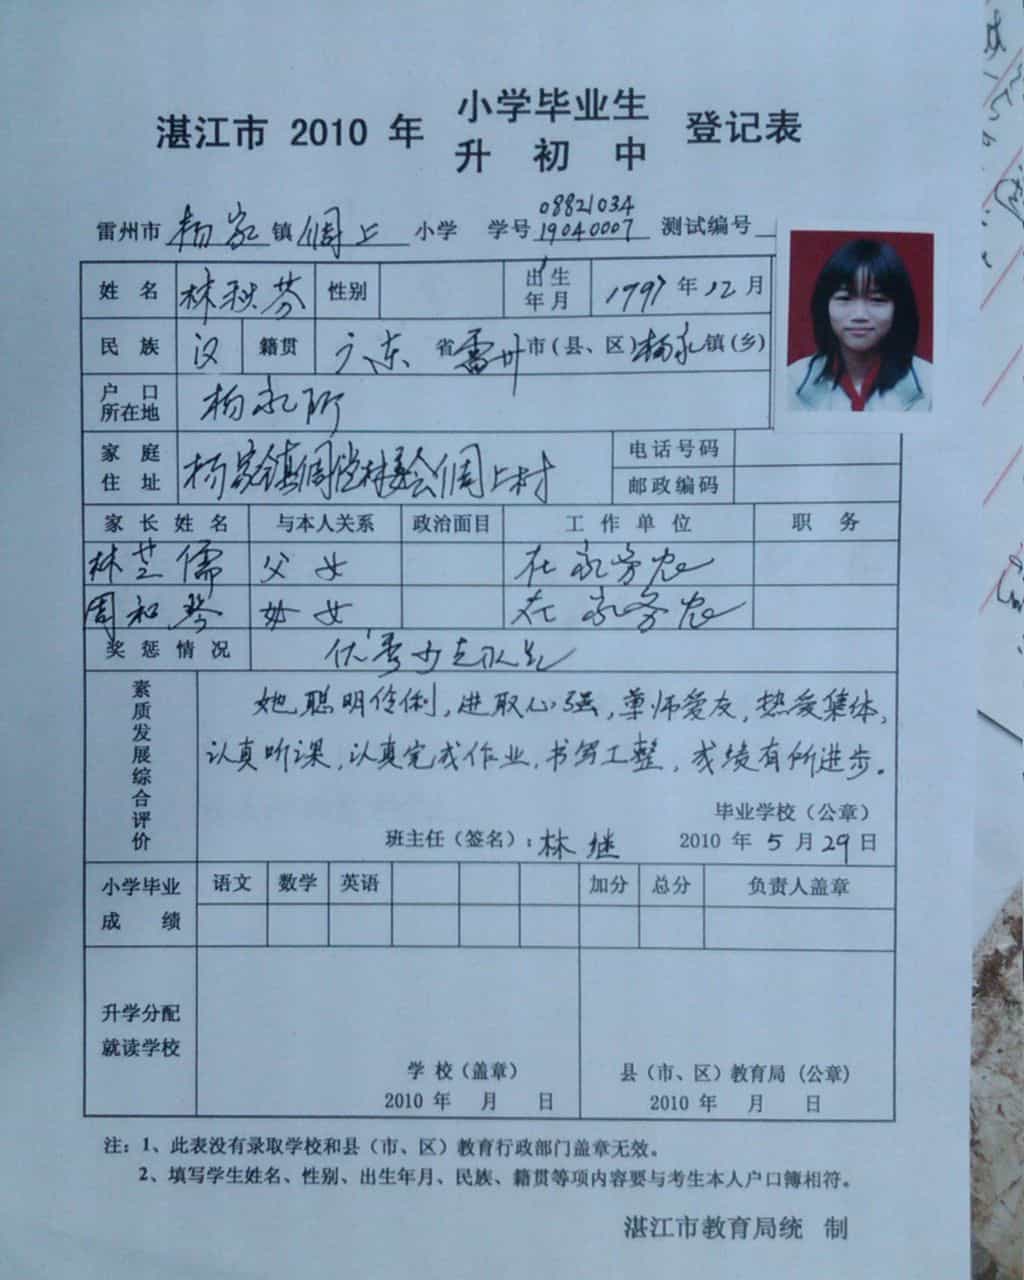 湛江市 2010 年 小学毕业生 登记表
升 初 中
08821034
雷州市 杨家 镇 调上 小学 学号 19040007 测试编号
姓 名 林秋芬 性别 出生年月 1997 年 12 月
民 族 汉 籍贯 广东 省 雷州 市(县、区) 杨家 镇(乡)
户 口 所在地 杨家所
家 庭 住 址 杨家镇 村委会 上村 电话号码
邮政编码
家 长 姓 名 与本人关系 政治面目 工 作 单 位 职 务
林芝儒 父女 在家务农
周和琴 母女 在家务农
奖 惩 情 况 优秀少先队员
素质发展综合评价
她聪明伶俐,进取心强,尊师爱友,热爱集体,
认真听课,认真完成作业,书写工整,成绩有所进步。
毕业学校(公章)
班主任(签名): 林继 2010 年 5 月 29 日
小学毕业 语文 数学 英语 加分 总分 负责人盖章
成 绩
升学分配
就读学校
学 校(盖章) 县(市、区)教育局(公章)
2010 年 月 日 2010 年 月 日
注: 1、此表没有录取学校和县(市、区)教育行政部门盖章无效。
2、填写学生姓名、性别、出生年月、民族、籍贯等项内容要与考生本人户口簿相符。
湛江市教育局统 制